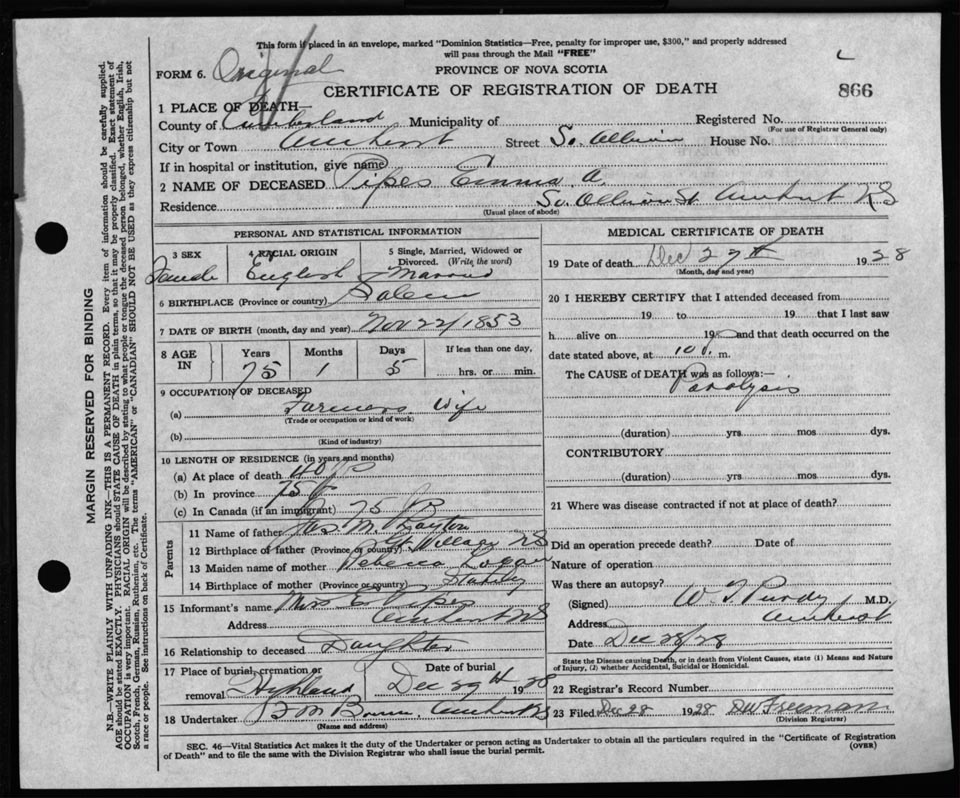 This form if placed in an envelope, marked "Dominion Statistics—Free, penalty for improper use, $300," and properly addressed
will pass through the Mail "FREE"
FORM 6. Original
PROVINCE OF NOVA SCOTIA
CERTIFICATE OF REGISTRATION OF DEATH 866
1 PLACE OF DEATH—
County of Cumberland Municipality of Registered No.
(For use of Registrar General only)
City or Town Amherst Street So. Albion House No.
If in hospital or institution, give name
2 NAME OF DECEASED Pipes Emma A.
Residence So Albion St Amherst NS
(Usual place of abode)
PERSONAL AND STATISTICAL INFORMATION
3 SEX 4 RACIAL ORIGIN 5 Single, Married, Widowed or
Divorced. (Write the word)
Female English Married
6 BIRTHPLACE (Province or country) Salem
7 DATE OF BIRTH (month, day and year) Nov 22/1853
8 AGE IN Years Months Days If less than one day,
75 1 5 hrs. or min.
9 OCCUPATION OF DECEASED
(a) Farmers Wife
(Trade or occupation or kind of work)
(b)
(Kind of industry)
10 LENGTH OF RESIDENCE (in years and months)
(a) At place of death 40
(b) In province 75
(c) In Canada (if an immigrant) 75
Parents
11 Name of father Jas M. Layton
12 Birthplace of father (Province or country) Gt Village NS
13 Maiden name of mother Rebecca
14 Birthplace of mother (Province or country)
15 Informant's name Miss E. Pipes
Address Amherst NS
16 Relationship to deceased Daughter
17 Place of burial, cremation or Date of burial
removal Highland Dec 29th 1928
18 Undertaker Amherst NS
(Name and address)
MEDICAL CERTIFICATE OF DEATH
19 Date of death Dec 27th 1928
(Month, day and year)
20 I HEREBY CERTIFY that I attended deceased from
19 to 19 that I last saw
h alive on 19 and that death occurred on
date stated above, at 10 m.
The CAUSE of DEATH was as follows:—
Paralysis
(duration) yrs mos dys.
CONTRIBUTORY
(duration) yrs mos dys.
21 Where was disease contracted if not at place of death?
Did an operation precede death? Date of
Nature of operation
Was there an autopsy?
(Signed) W. T. Purdy M.D.
Address Amherst
Date Dec 28/28
State the Disease causing Death, or in death from Violent Causes, state (1) Means and Nature
of Injury, (2) whether Accidental, Suicidal or Homicidal.
22 Registrar's Record Number
23 Filed Dec 28 1928 Freeman
(Division Registrar)
SEC. 46—Vital Statistics Act makes it the duty of the Undertaker or person acting as Undertaker to obtain all the particulars required in the "Certificate of Registration
of Death" and to file the same with the Division Registrar who shall issue the burial permit. (OVER)
MARGIN RESERVED FOR BINDING
N.B.—WRITE PLAINLY WITH UNFADING INK—THIS IS A PERMANENT RECORD. Every item of information should be carefully supplied.
AGE should be stated EXACTLY. PHYSICIANS should STATE CAUSE OF DEATH in plain terms, so that it may be properly classified. Exact statement of
OCCUPATION is very important. RACIAL ORIGIN will be described by stating to what people or tongue the deceased person belonged, whether English, Irish,
Scotch, French, German, Russian, Ruthenian, etc. The terms "AMERICAN" or "CANADIAN" SHOULD NOT BE USED as they express citizenship but not
a race or people. See instructions on back of Certificate.